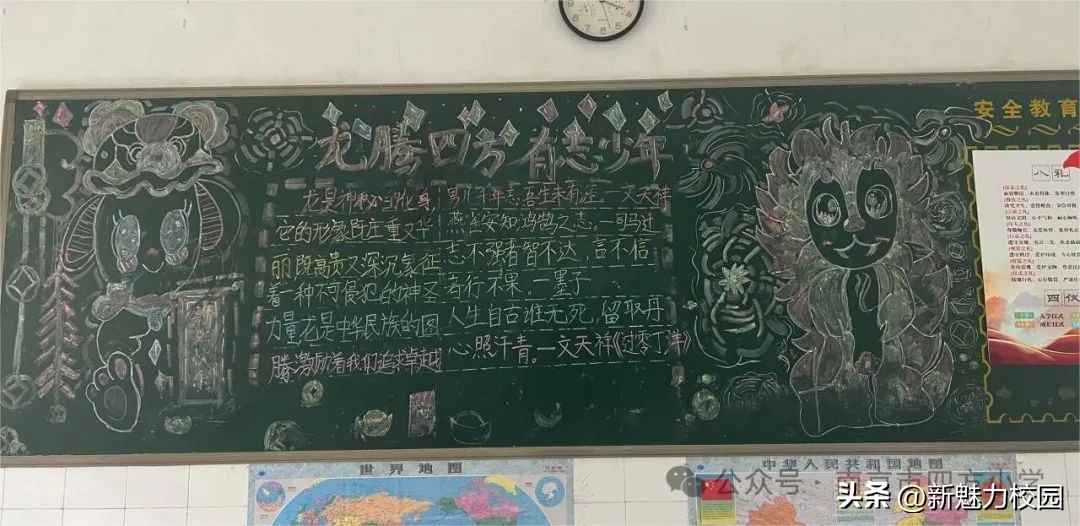 龙腾四方有志少年
龙是神秘的化身,
它的形象既庄重又华
丽既高贵又深沉象征
着一种不可侵犯的神圣
力量龙是中华民族的图
腾激励着我们追求卓越
男儿千年志吾生未有涯——文天祥
燕雀安知鸿鹄之志——司马迁
志不强者智不达,言不信
者行不果。—墨子
人生自古谁无死,留取丹
心照汗青。—文天祥《过零丁洋》
安全教育
八礼
四仪
入学仪式
成长仪式
世界地图
中华人民共和国地图
公众号·南京市四方小学
头条 @新魅力校园